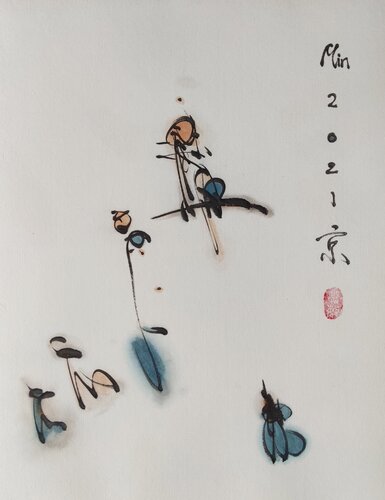 Min 2021 京